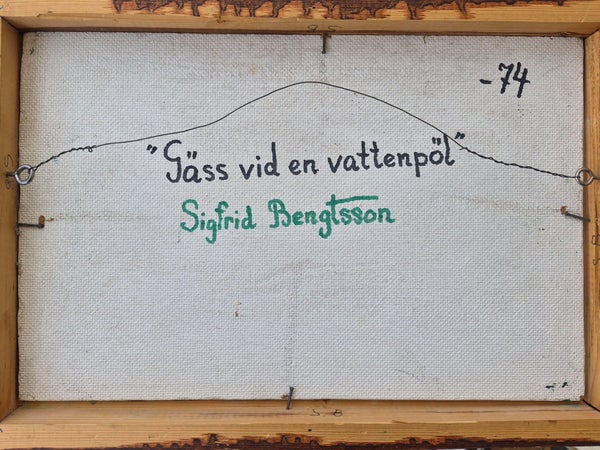 -74
"Gäss vid en vattenpöl"
Sigfrid Bengtsson
S.B